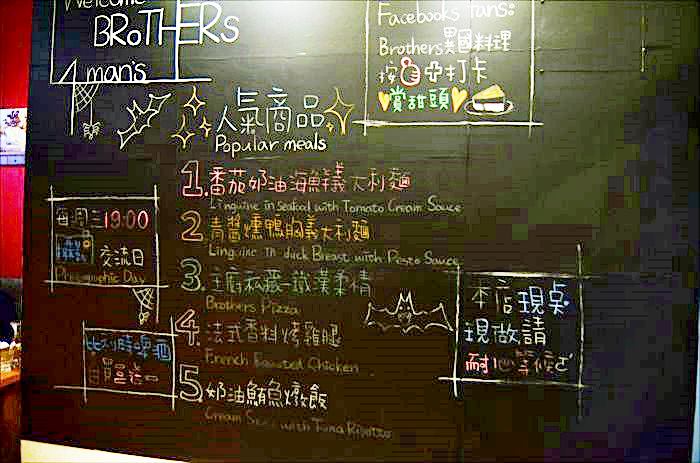 Welcome
BRoTHERs
4 man's
Facebooks fans:
Brothers異國料理
按 打卡
賞甜頭
人氣商品
Popular meals
1.番茄奶油海鮮義大利麵
Linguine in seafood with Tomato Cream Sauce
2 青醬燻鴨胸義大利麵
Linguine in duck Breast with Pesto Sauce
3 主廚私藏-鐵漢柔情
Brothers Pizza
4. 法式香料烤雞腿
French Roasted Chicken
5 奶油鮪魚燉飯
Cream Sauce with Tuna Risotto
每周三19:00
交流日
Photographic Day
比利時啤酒
買 送一
本店現桌
現做請
耐心等候